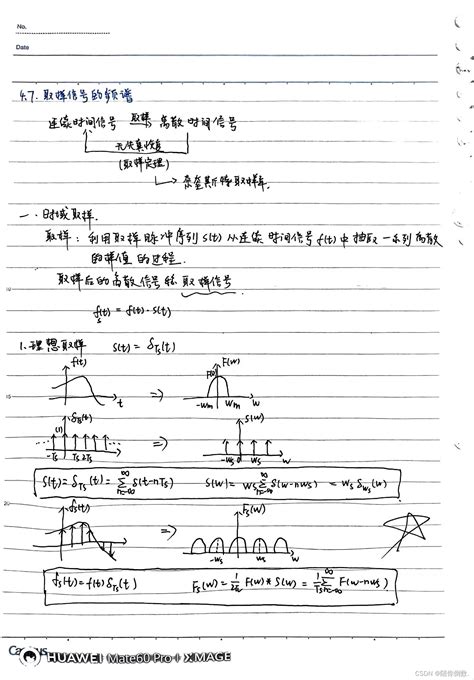 No.
Date
4.7. 取样信号的频谱
连续时间信号 取样 离散时间信号
无失真恢复
(取样定理)
奈奎斯特取样率.
一. 时域取样.
取样: 利用取样脉冲序列 s(t) 从连续时间信号 f(t) 中抽取一系列离散
的样值的过程.
取样后的离散信号称取样信号
fs(t) = f(t)·s(t)
1. 理想取样 s(t) = δTs(t)
f(t) F(w)
t ⇒ -wm wm w
δTs(t) S(w)
(1) ⇒
-Ts Ts 2Ts t -ws 0 ws w
S(t) = δTs(t) = ∑ δ(t-nTs) n=-∞ ∞ S(w) = ws ∑ δ(w-nws) n=-∞ ∞ = ws δws(w)
fs(t) Fs(w)
⇒ -ws ws w
fs(t) = f(t) δTs(t) Fs(w) = 1/2π F(w) * S(w) = 1/Ts ∑ F(w-nws) n=-∞ ∞
HUAWEI Mate60 Pro+ XMAGE